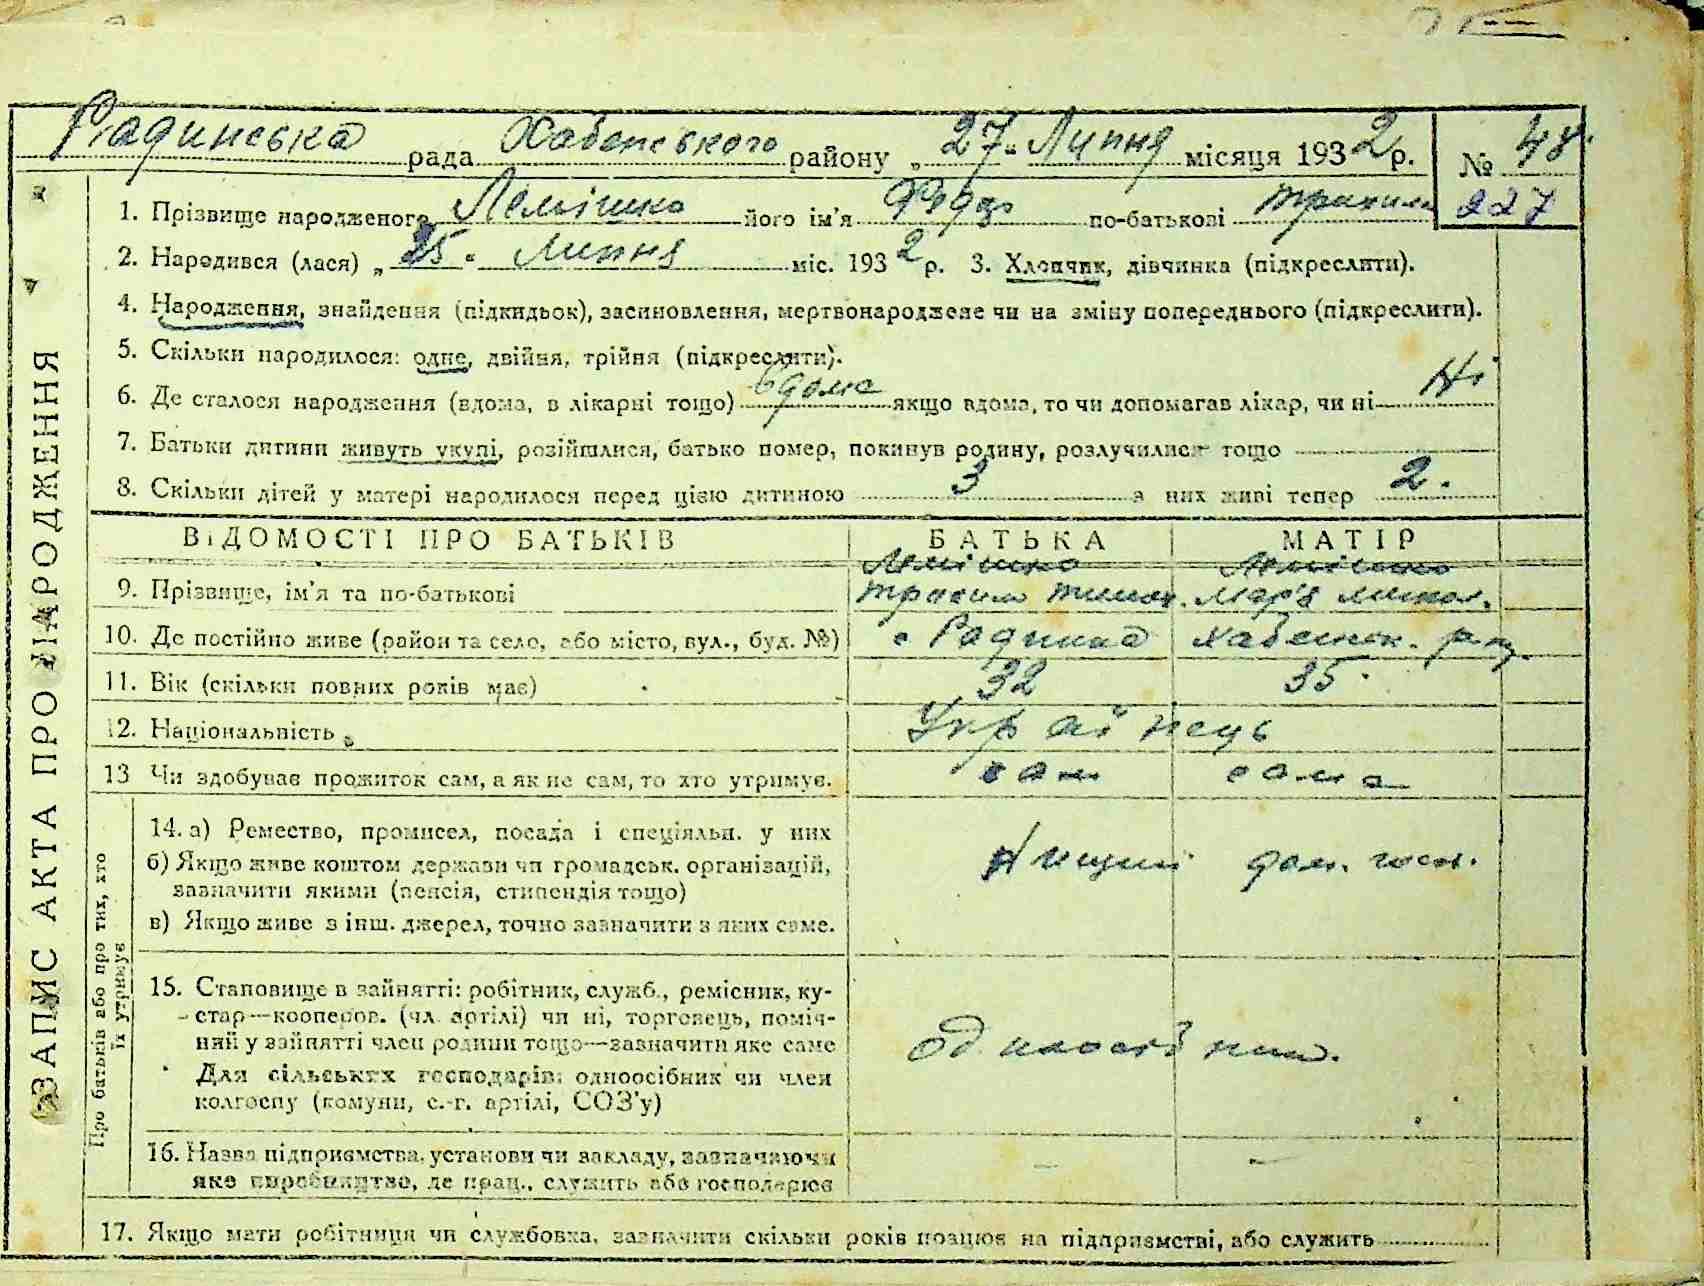 Радинська рада Хабенського району „27“ Липня місяця 1932 р. № 48
227
1. Прізвище народженого Лемішко його ім'я по-батькові Трохим
2. Народився (лася) „25“ Липня міс. 1932 р. 3. Хлопчик, дівчинка (підкреслити).
4. Народження, знайдення (підкидьок), засиновлення, мертвонароджене чи на зміну попереднього (підкреслити).
5. Скільки народилося: одне, двійня, трійня (підкреслити).
6. Де сталося народження (вдома, в лікарні тощо) вдома якщо вдома, то чи допомагав лікар, чи ні Ні
7. Батьки дитини живуть укупі, розійшлися, батько помер, покинув родину, розлучилися тощо
8. Скільки дітей у матері народилося перед цією дитиною 3 з них живі тепер 2.
ВІДОМОСТІ ПРО БАТЬКІВ БАТЬКА МАТІР
Лемішко Лемішко
9. Прізвище, ім'я та по-батькові Трохим Тимох. Мар'я микол.
10. Де постійно живе (район та село, або місто, вул., буд. №) с Радинка Хабенськ. р-ну
11. Вік (скільки повних років має) 32 35
12. Національність Українець
13 Чи здобуває прожиток сам, а як не сам, то хто утримує. сам сама
14. а) Ремество, промисел, посада і спеціяльн. у них
б) Якщо живе коштом держави чи громадськ. організацій, дом. госп.
зазначити якими (пенсія, стипендія тощо)
в) Якщо живе з інш. джерел, точно зазначити з яких саме.
15. Становище в зайнятті: робітник, служб., ремісник, ку-
стар—кооперов. (чл. артілі) чи ні, торговець, поміч-
ний у зайнятті член родини тощо—зазначити яке саме одноосібник.
Для сільських господарів: одноосібник чи член
колгоспу (комуни, с.-г. артілі, СОЗ'у)
16. Назва підприємства, установи чи закладу, зазначаючи – –
яке виробництво, де прац., служить або господарює
17. Якщо мати робітниця чи службовка, зазначити скільки років працює на підприємстві, або служить
ЗАПИС АКТА ПРО НАРОДЖЕННЯ
Про батьків або про тих, хто
їх утримує